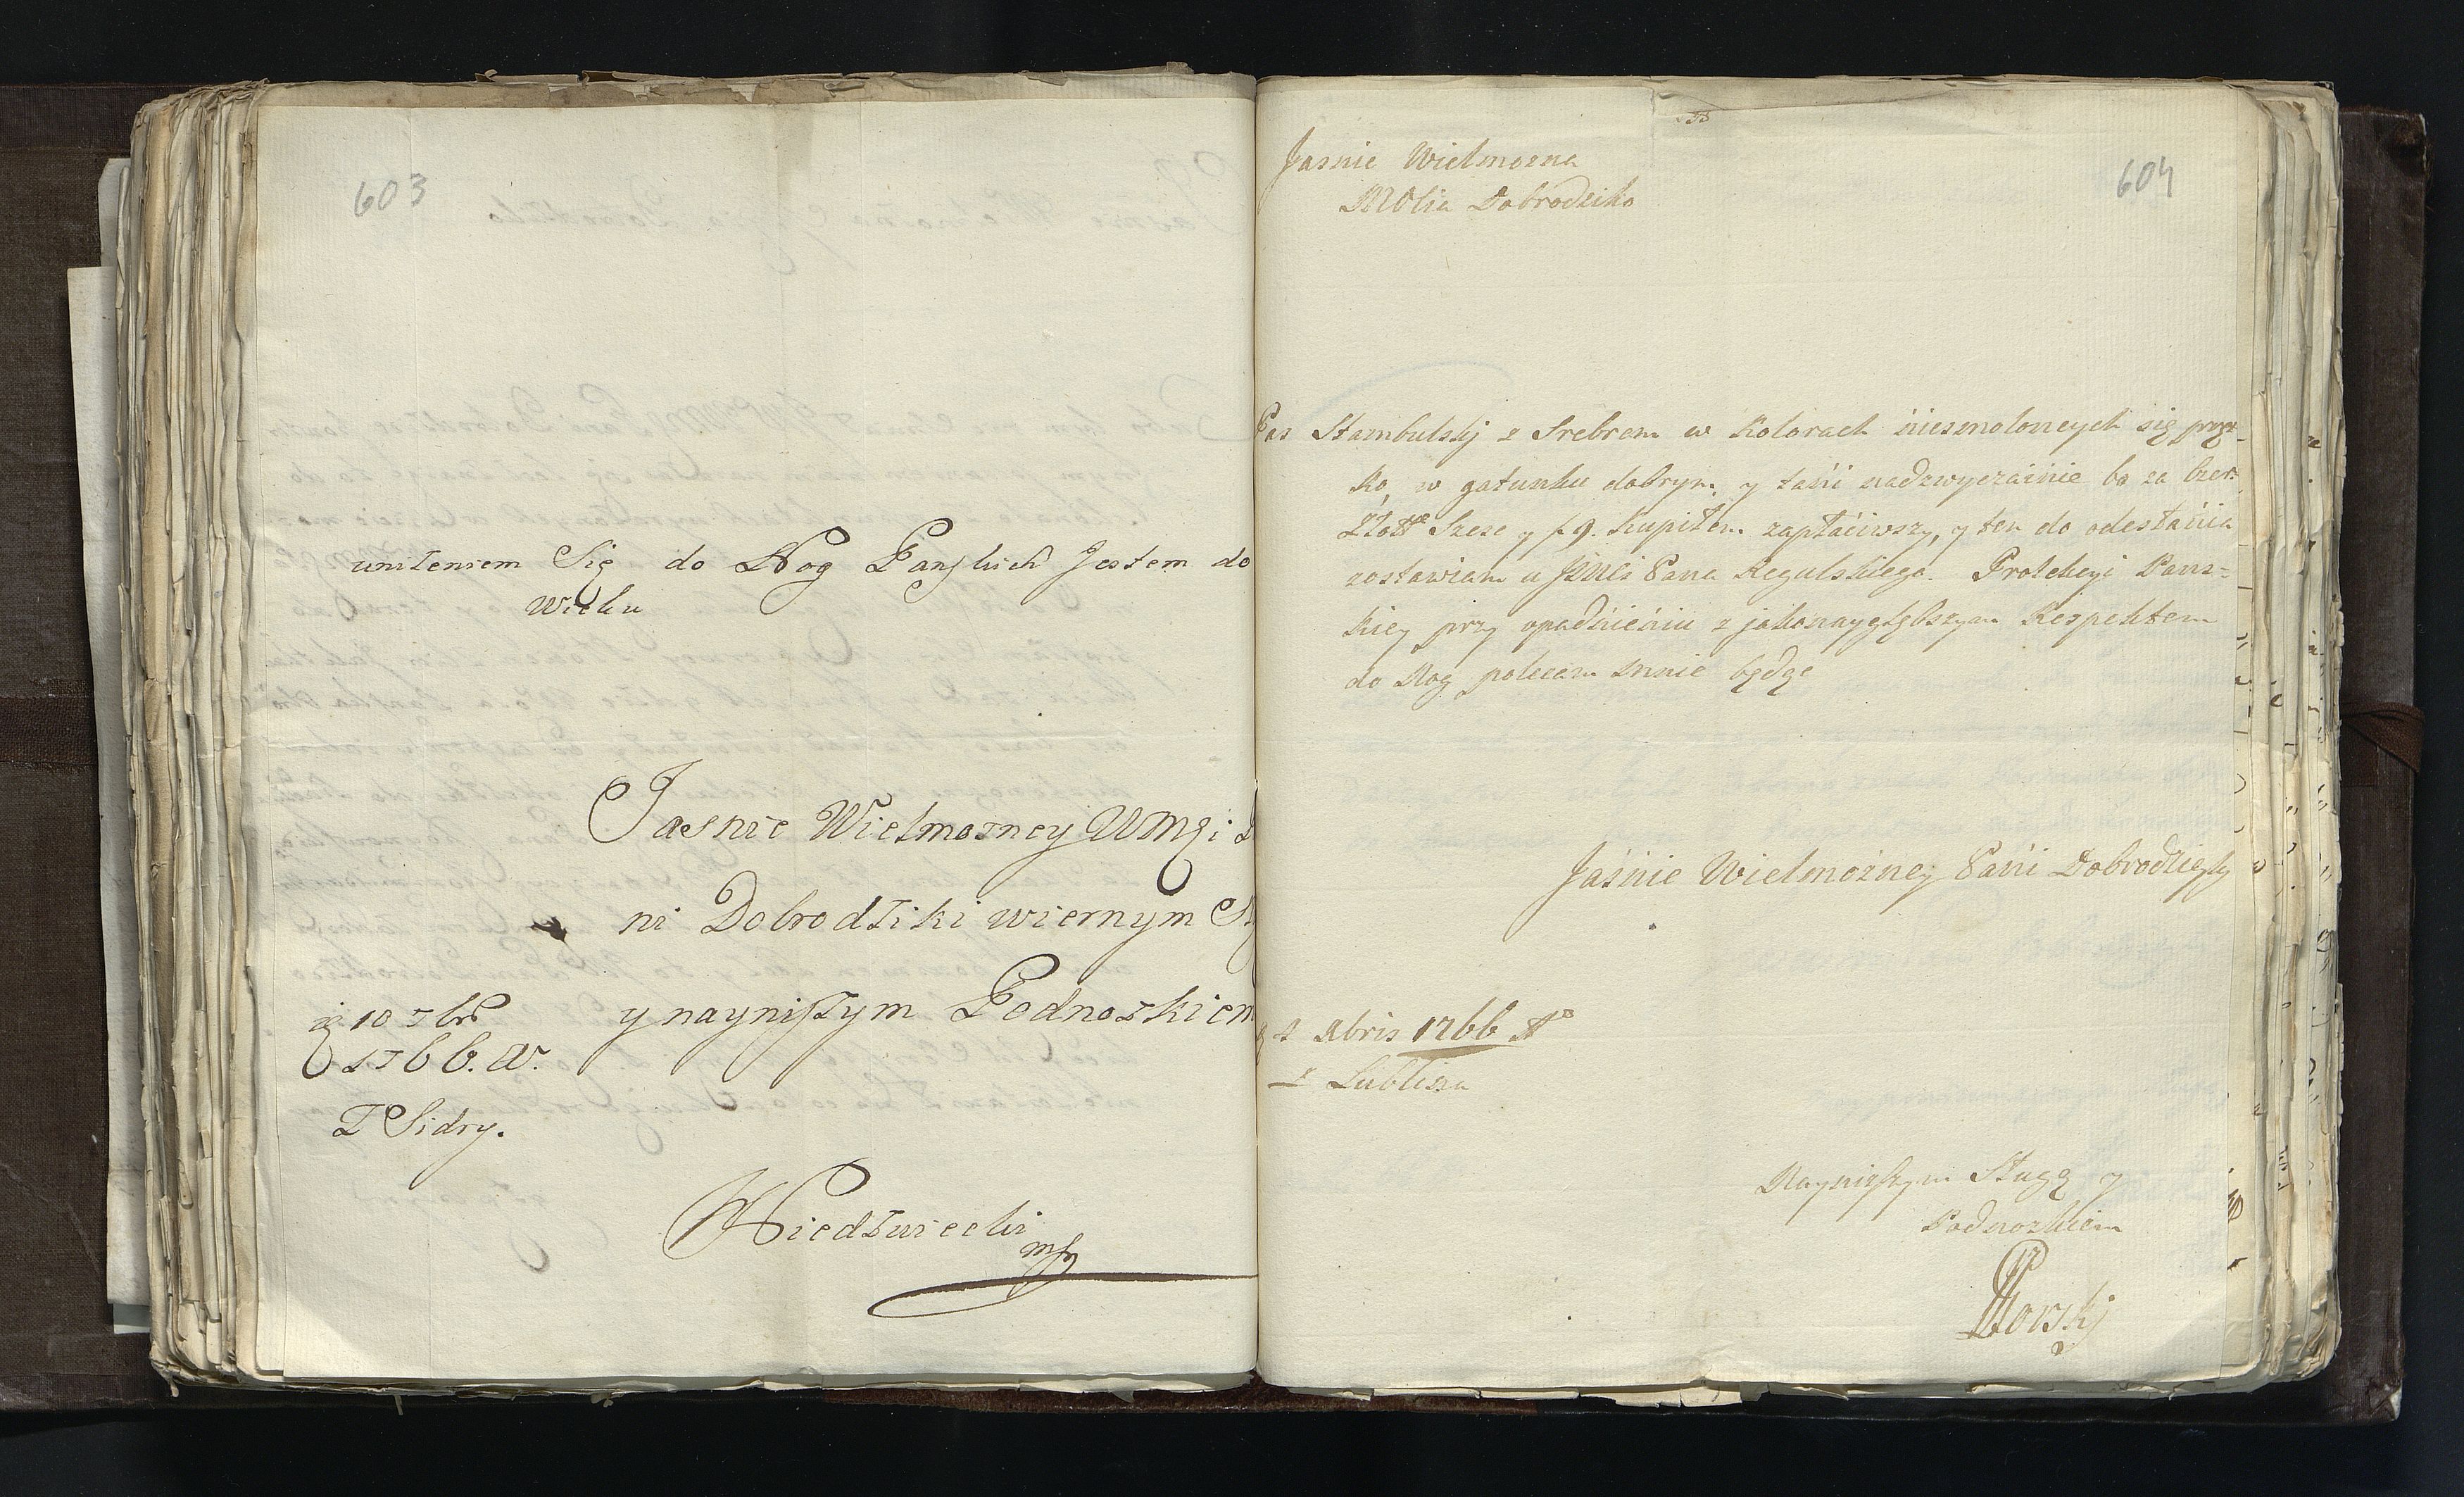 603
uniżeniem Się do Nog Pańskich Jestem do
Wieku
Jasnie Wielmozney WMPi
ni Dobrodziki wiernym
y nayniszym Podnozkiem
10 7br
1766. A.
Z Sidry.
Niedzwiecki
mp
604
Jasnie Wielmozna
Dobrodziko
Pas Stambulskj z Srebrem w Kolorach
ko, w gatunku dobrym, y tani nadzwyczainie bo za Czer:
Złott Szesc y f 9. kupiłem zapłaciwszy, y ten do odesłania
zostawiam u Pana Regulskiego. Protekcyi Pans=
kiey przy opadnieniu z jaknayglębszym Respektem
do Nog polecam mnie będąc
Jaśnie Wielmożney Pani Dobrodzieyki
4 Xbris 1766 Ao
z Lublina
Nayniszym Sługą y
Podnozkiem